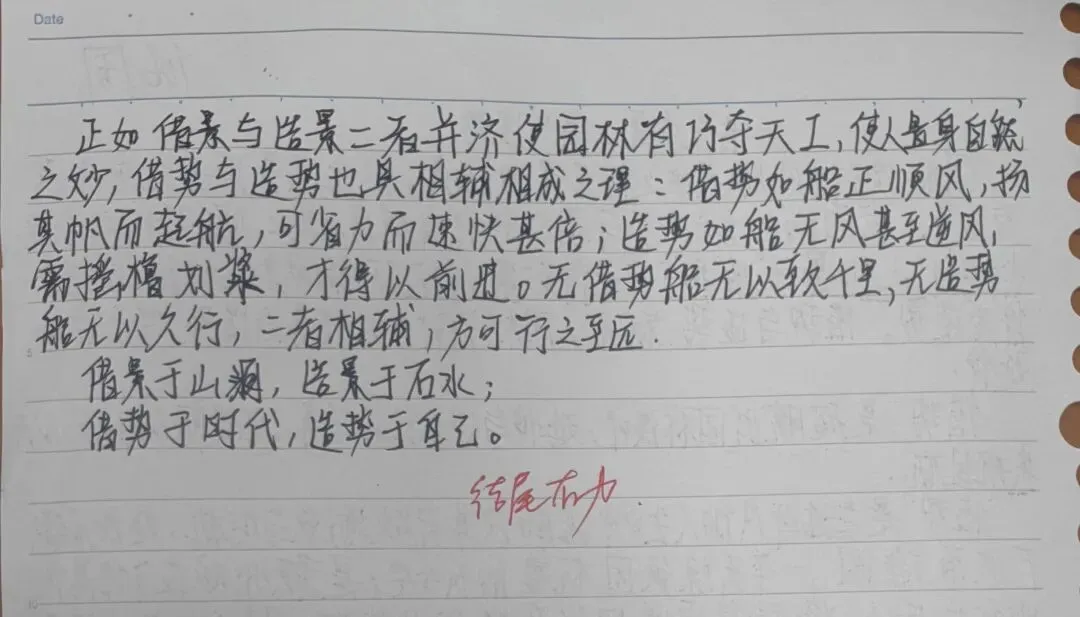 Date
正如借景与造景二者并济使园林有巧夺天工,使人置身自然
之妙,借势与造势也具相辅相成之理:借势如船正顺风,扬
其帆而起航,可省力而速快甚倍;造势如船无风甚至逆风,
需摇橹划桨,才得以前进。无借势船无以致千里,无造势
船无以久行,二者相辅,方可行之至远.
借景于山湖,造景于石水;
借势于时代,造势于自己。
结尾有力